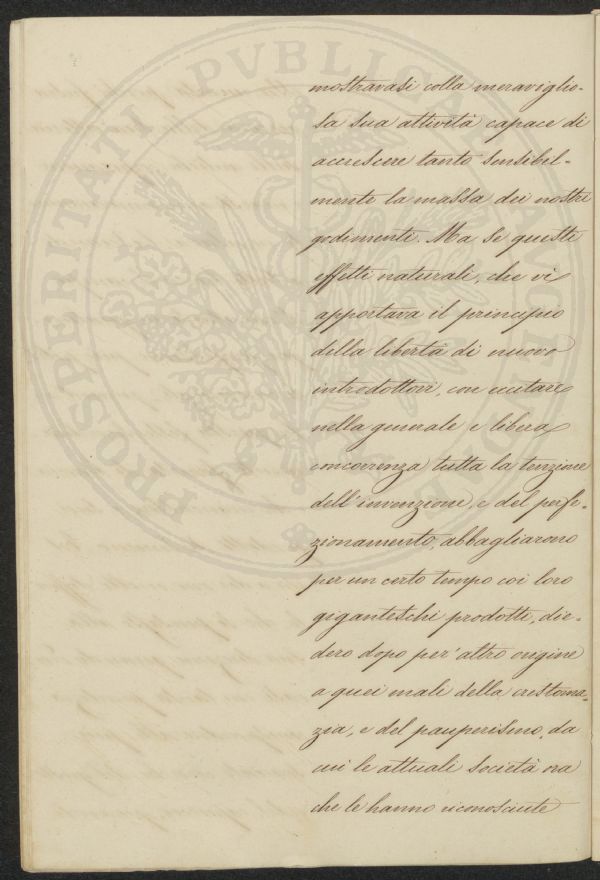 PROSPERITATI PVBLICAE AVGENDAE
mostravasi colla meraviglio-
sa sua attività capace di
accrescere tanto sensibil-
mente la massa dei nostri
godimenti. Ma se questi
effetti naturali, che vi
apportava il principio
della libertà di nuovo
introdottovi, con eccitare
nella generale e libera
concorrenza tutta la tenzione
dell'invenzione, e del perfe-
zionamento, abbagliarono
per un certo tempo coi loro
giganteschi prodotti, die-
dero dopo per'altro origine
a quei mali della crestoma-
zia, e del pauperismo, da
cui le attuali società ora
che le hanno riconosciute